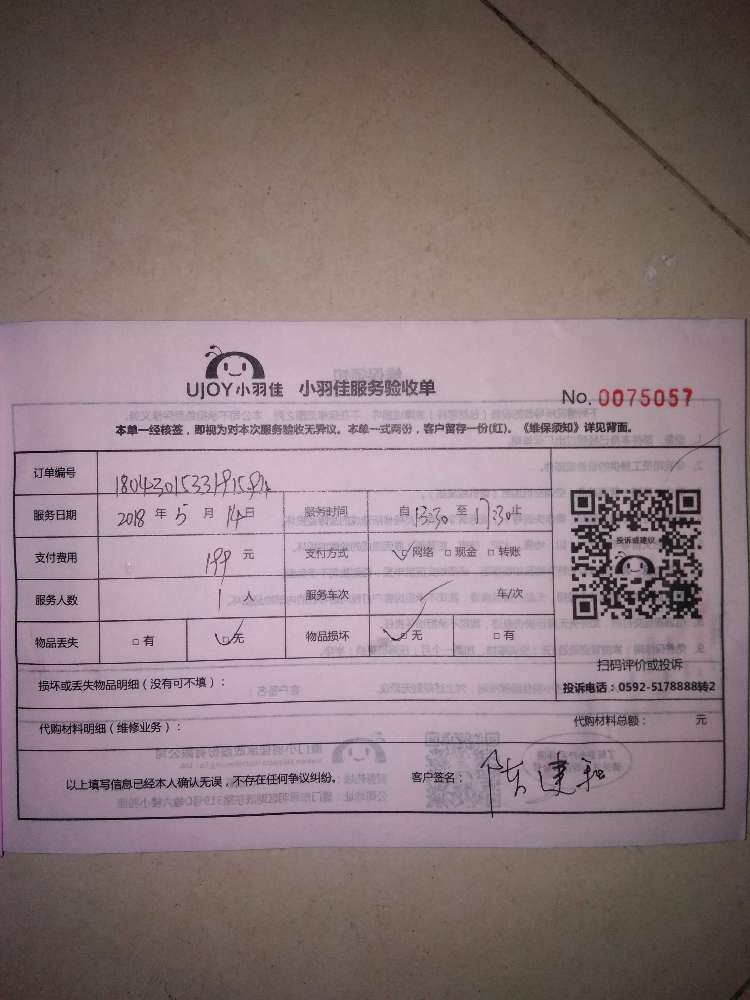 UJOY小羽佳 小羽佳服务验收单
No. 0075057
本单一经核签，即视为对本次服务验收无异议。本单一式两份，客户留存一份(红)。《维保须知》详见背面。
订单编号
服务日期 2018 年 5 月 14 日 服务时间 自 13:30 至 17:30 止
支付费用 199 元 支付方式 ☑网络 □现金 □转账
服务人数 1 人 服务车次 车/次
物品丢失 □有 ☑无 物品损坏 ☑无 □有
投诉或建议
扫码评价或投诉
投诉电话：0592-5178888转2
损坏或丢失物品明细（没有可不填）：
代购材料明细（维修业务）： 代购材料总额： 元
以上填写信息已经本人确认无误，不存在任何争议纠纷。 客户签名：